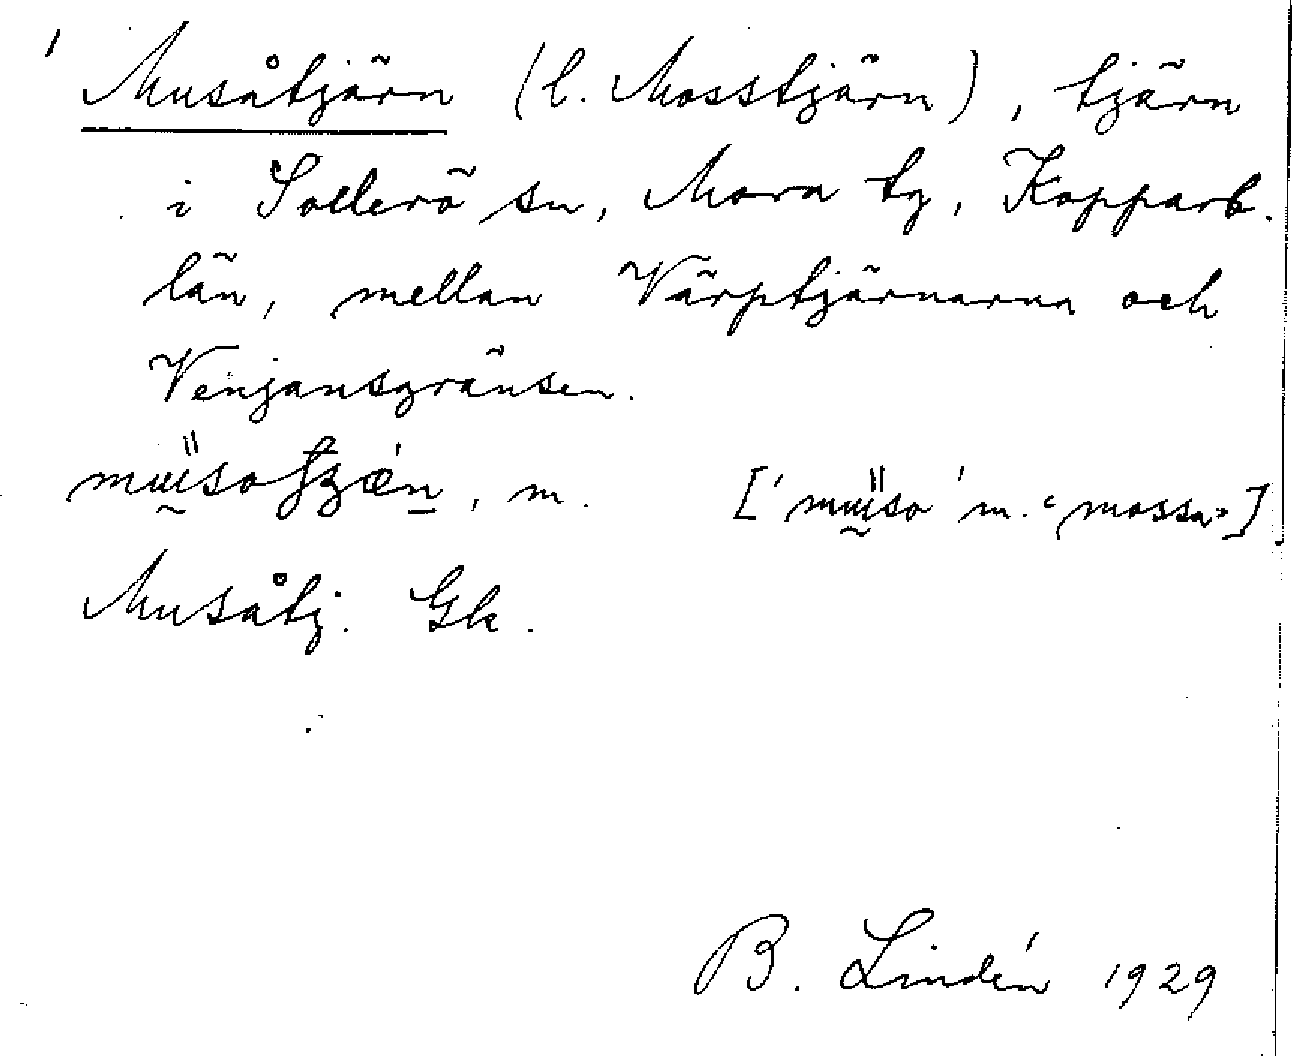 Musåtjärn (l. Mosstjärn), tjärn
i Sollerö sn, Mora tg, Kopparb.
län, mellan Värptjärnarna och
Venjansgränsen.
, m. [ m. "mossa"]
Musåtj. Gk.
B. Lindén 1929